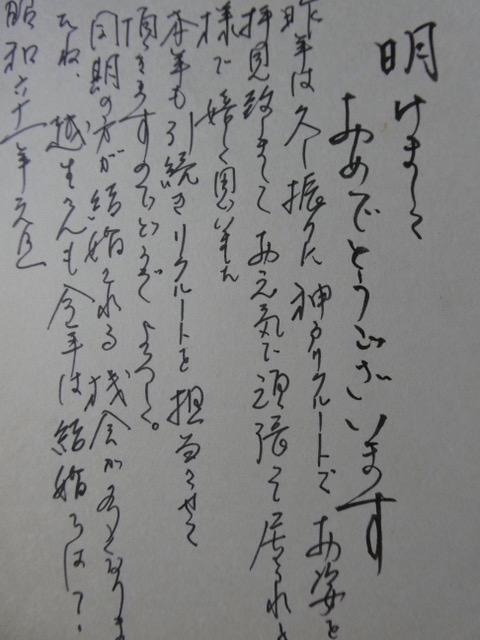 明けまして
おめでとうございます
昨年は久し振りに神戸リクルートでお姿を
拝見致しまして お元気で頑張って居られる
様で嬉しく思いました
本年も引続きリクルートを担当させて
頂きますのでどうぞよろしく。
同期の方が結婚される機会が多くなりま
たね。越生さんも今年は結婚ろは?
昭和六十一年元旦